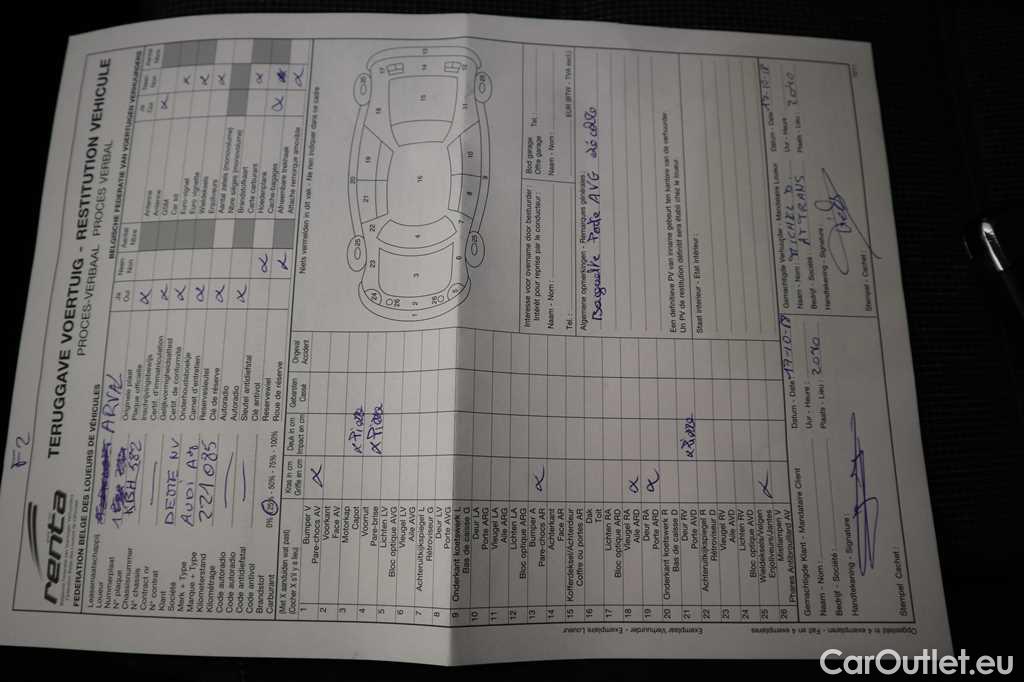 F2
renta
FEDERATION BELGE DES LOUEURS DE VÉHICULES
TERUGGAVE VOERTUIG - RESTITUTION VEHICULE
PROCES-VERBAAL PROCES VERBAL
BELGISCHE FEDERATIE VAN VOERTUIGEN VERHUURDERS
Leasemaatschappij
Loueur
ARVAL
Nummerplaat
N° plaque
KBH 582
Chassisnummer
N° chassis
Contract nr
N° contrat
Klant
Société
DEME NV
Merk + Type
Marque + Type
AUDI A4
Kilometerstand
Kilométrage
221085
Code autoradio
Code autoradio
Code antidiefstal
Code antidiefstal
Brandstof
Carburant
0% 25% - 50% - 75% - 100%
Ja Oui
Neen Non
Aantal Nbre
Originele plaat
Plaque officielle
Inschrijvingsbewijs
Certif. d'immatriculation
Gelijkvormigheidsattest
Certif. de conformité
Onderhoudsboekje
Carnet d'entretien
Reservesleutel
Clé de réserve
Autoradio
Autoradio
Sleutel antidiefstal
Clé antivol
Reservewiel
Roue de réserve
Ja Oui
Neen Non
Aantal Nbre
Antenne
Antenne
GSM
Car kit
Euro-vignet
Euro vignette
Wieldeksels
Enjoliveurs
Aantal zetels (monovolume)
Nbre sièges (monovolume)
Brandstofkaart
Carte carburant
Hoedenplank
Cache-bagages
Afneembare trekhaak
Attache remorque amovible
(Met X aanduiden wat past)
(Cocher X s'il y a lieu)
Kras in cm
Griffe en cm
Deuk in cm
Impact en cm
Gebarsten
Cassé
Ongeval
Accident
Niets vermelden in dit vak - Ne rien indiquer dans ce cadre
1 Bumper V
Pare-chocs AV
2 Voorkant
Face AV
3 Motorkap
Capot
4 Voorruit
Pare-brise
5 Lichten LV
Bloc optique AVG
6 Vleugel LV
Aile AVG
7 Achteruitkijkspiegel L
Rétroviseur G
8 Deur LV
Porte AVG
9 Onderkant koetswerk L
Bas de caisse G
10 Deur LA
Porte ARG
11 Vleugel LA
Aile ARG
12 Lichten LA
Bloc optique ARG
13 Bumper A
Pare-chocs AR
14 Achterkant
Face AR
15 Kofferdeksel/Achterdeur
Coffre ou portes AR
16 Dak
Toit
17 Lichten RA
Bloc optique ARD
18 Vleugel RA
Aile ARD
19 Deur RA
Porte ARD
20 Onderkant koetswerk R
Bas de caisse D
21 Deur RV
Porte AVD
22 Achteruitkijkspiegel R
Rétroviseur D
23 Vleugel RV
Aile AVD
24 Lichten RV
Bloc optique AVD
25 Wieldeksels/Velgen
Enjoliveurs/Jantes
26 Mistlampen V
Phares Antibrouillard AV
Interesse voor overname door bestuurder :
Intérêt pour reprise par le conducteur :
Naam - Nom :
Tel. :
Bod garage
Offre garage
Tel.
Naam - Nom :
EUR (BTW - TVA excl.)
Algemene opmerkingen - Remarques générales :
Baguette Porte AVG décollé
Een definitieve PV van inname gebeurt ten kantore van de verhuurder
Un PV de restitution définitif sera établi chez le loueur.
Staat interieur - Etat intérieur :
Datum - Date 17-10-18
Gemachtigde Klant - Mandataire Client
Uur - Heure :
Naam - Nom :
Plaats - Lieu : 2070
Bedrijf - Société :
Handtekening - Signature :
Stempel Cachet :
Datum - Date 17-10-18
Gemachtigde Verhuurder - Mandataire Loueur
Uur - Heure :
Naam - Nom : MICHEL D
Plaats - Lieu : 2070
Bedrijf - Société : AT TRANS
Handtekening - Signature :
Stempel : Cachet :
Exemplaar Verhuurder - Exemplaire Loueur
Opgesteld in 4 exemplaren - Fait en 4 exemplaires
CarOutlet.eu